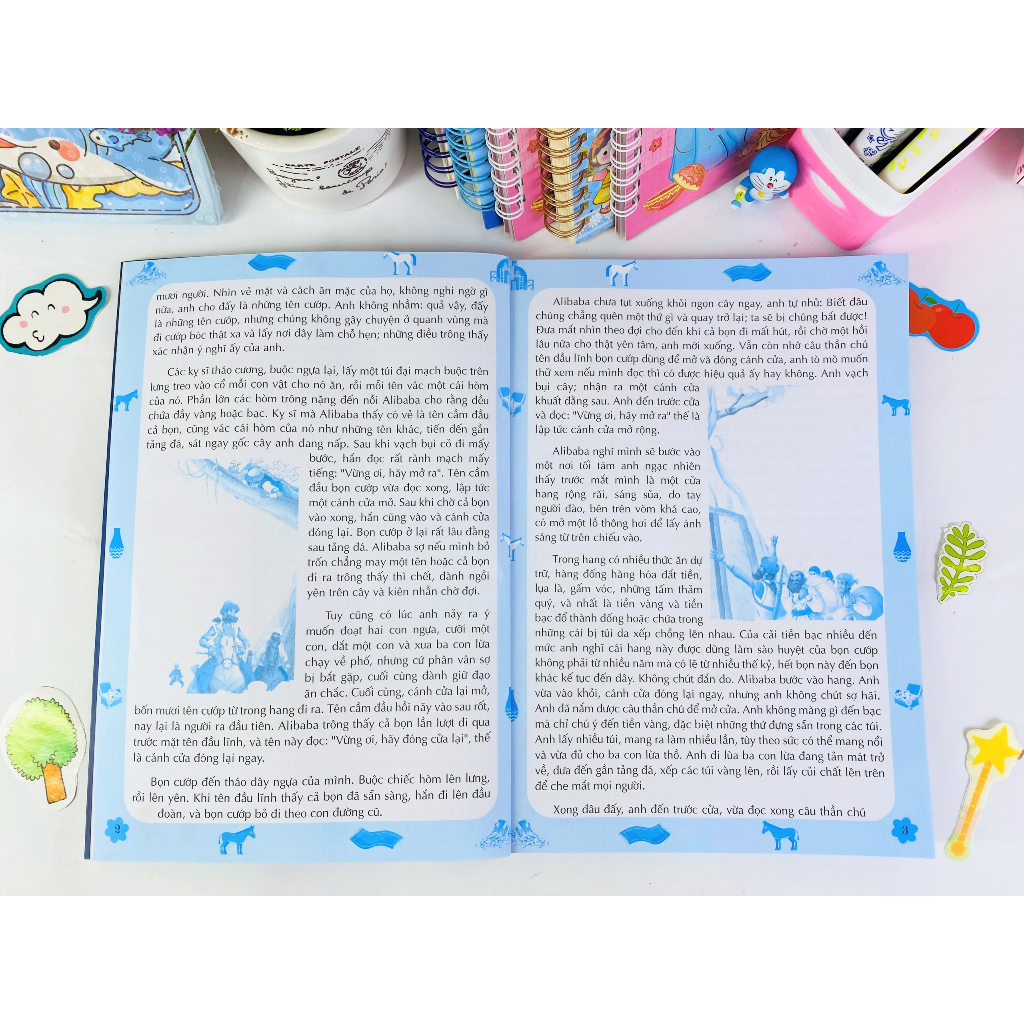 CARTE POSTALE
mươi người. Nhìn vẻ mặt và cách ăn mặc của họ, không nghi ngờ gì
nữa, anh cho đấy là những tên cướp. Anh không nhầm: quả vậy, đấy
là những tên cướp, nhưng chúng không gây chuyện ở quanh vùng mà
đi cướp bóc thật xa và lấy nơi đây làm chỗ hẹn; những điều trông thấy
xác nhận ý nghĩ ấy của anh.
Các kỵ sĩ tháo cương, buộc ngựa lại, lấy một túi đại mạch buộc trên
lưng treo vào cổ mỗi con vật cho nó ăn, rồi mỗi tên vác một cái hòm
của nó. Phần lớn các hòm trông nặng đến nỗi Alibaba cho rằng đều
chứa đầy vàng hoặc bạc. Kỵ sĩ mà Alibaba thấy có vẻ là tên cầm đầu
cả bọn, cũng vác cái hòm của nó như những tên khác, tiến đến gần
tảng đá, sát ngay gốc cây anh đang nấp. Sau khi vạch bụi cỏ đi mấy
bước, hắn đọc rất rành mạch mấy
tiếng: "Vừng ơi, hãy mở ra". Tên cầm
đầu bọn cướp vừa đọc xong, lập tức
một cánh cửa mở. Sau khi chờ cả bọn
vào xong, hắn cũng vào và cánh cửa
đóng lại. Bọn cướp ở lại rất lâu đằng
sau tảng đá. Alibaba sợ nếu mình bỏ
trốn chẳng may một tên hoặc cả bọn
đi ra trông thấy thì chết, dành ngồi
yên trên cây và kiên nhẫn chờ đợi.
Tuy cũng có lúc anh nảy ra ý
muốn đoạt hai con ngựa, cưỡi một
con, dắt một con và xua ba con lừa
chạy về phố, nhưng cứ phân vân sợ
bị bắt gặp, cuối cùng đành giữ đạo
ăn chắc. Cuối cùng, cánh cửa lại mở,
bốn mươi tên cướp từ trong hang đi ra. Tên cầm đầu hồi nãy vào sau rốt,
nay lại là người ra đầu tiên. Alibaba trông thấy cả bọn lần lượt đi qua
trước mặt tên đầu lĩnh, và tên này đọc: "Vừng ơi, hãy đóng cửa lại", thế
là cánh cửa đóng lại ngay.
Bọn cướp đến tháo dây ngựa của mình. Buộc chiếc hòm lên lưng,
rồi lên yên. Khi tên đầu lĩnh thấy cả bọn đã sẵn sàng, hắn đi lên đầu
đoàn, và bọn cướp bỏ đi theo con đường cũ.
2
Alibaba chưa tụt xuống khỏi ngọn cây ngay, anh tự nhủ: Biết đâu
chúng chẳng quên một thứ gì và quay trở lại; ta sẽ bị chúng bắt được!
Đưa mắt nhìn theo đợi cho đến khi cả bọn đi mất hút, rồi chờ một hồi
lâu nữa cho thật yên tâm, anh mới xuống. Vẫn còn nhớ câu thần chú
tên đầu lĩnh bọn cướp dùng để mở và đóng cánh cửa, anh tò mò muốn
thử xem nếu mình đọc thì có được hiệu quả ấy hay không. Anh vạch
bụi cây; nhận ra một cánh cửa
khuất đằng sau. Anh đến trước cửa
và đọc: "Vừng ơi, hãy mở ra" thế là
lập tức cánh cửa mở rộng.
Alibaba nghĩ mình sẽ bước vào
một nơi tối tăm anh ngạc nhiên
thấy trước mắt mình là một cửa
hang rộng rãi, sáng sủa, do tay
người đào, bên trên vòm khá cao,
có mở một lỗ thông hơi để lấy ánh
sáng từ trên chiếu vào.
Trong hang có nhiều thức ăn dự
trữ, hàng đống hàng hóa đắt tiền,
lụa là, gấm vóc, những tấm thảm
quý, và nhất là tiền vàng và tiền
bạc để thành đống hoặc chứa trong
những cái bị túi da xếp chồng lên nhau. Của cải tiền bạc nhiều đến
mức anh nghĩ cái hang này được dùng làm sào huyệt của bọn cướp
không phải từ nhiều năm mà có lẽ từ nhiều thế kỷ, hết bọn này đến bọn
khác kế tục đến đây. Không chút đắn đo. Alibaba bước vào hang. Anh
vừa vào khỏi, cánh cửa đóng lại ngay, nhưng anh không chút sợ hãi.
Anh đã nắm được câu thần chú để mở cửa. Anh không màng gì đến bạc
mà chỉ chú ý đến tiền vàng, đặc biệt những thứ đựng sẵn trong các túi.
Anh lấy nhiều túi, mang ra làm nhiều lần, tùy theo sức có thể mang nổi
và vừa đủ cho ba con lừa thồ. Anh đi lùa ba con lừa đang tản mát trở
về, đưa đến gần tảng đá, xếp các túi vàng lên, rồi lấy củi chất lên trên
để che mắt mọi người.
Xong đâu đấy, anh đến trước cửa, vừa đọc xong câu thần chú
3